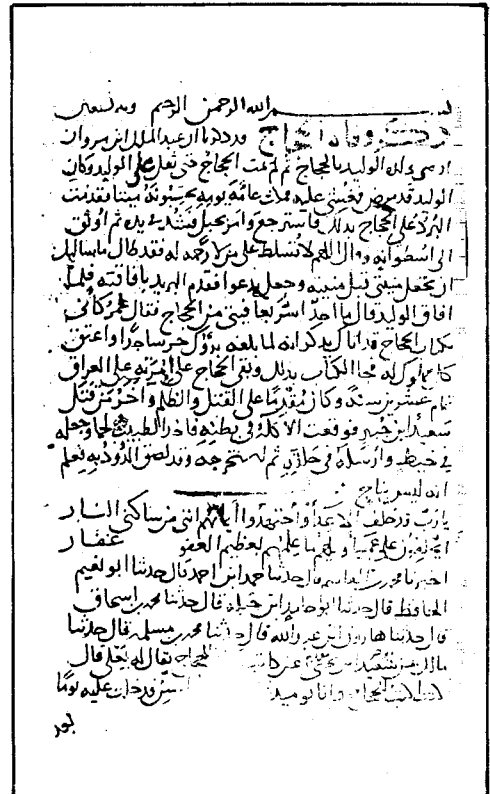 بسم الله الرحمن الرحيم وبه نستعين
ذكر وفاة الحجاج وروي ان عبد الملك ابن مروان
اوصى ولده الوليد بالحجاج ثم لم يمت الحجاج حتى ثقل على الوليد وكان
الوليد قد مرض فغشي عليه فمكث عامة يومه يحسبونه ميتا فقدمت
البرد على الحجاج بذلك فاسترجع وامر بحبل فشد في يده ثم اوثق
الى اسطوانة وقال اللهم لا تسلط علي من لا رحمة له فقد طال ما سالتك
ان تجعل منيتي قبل منيته وجعل يدعوا فقدم البريد بافاقته فلما
افاق الوليد قال ما احد اسر بعافيتي من الحجاج فقال عمر كأني
بكتاب الحجاج قد اتاك يذكر انه لما بلغه برؤك خر ساجدا واعتق
كل مملوك له فجا الكتاب بذلك وبقي الحجاج على امرته على العراق
تمام عشرين سنة وكان مقدما على القتل والظلم وآخر من قتل
سعيد ابن جبير فوقعت الاكلة في بطنه فاخذ الطبيب لحما وجعله
في خيط وارسله في حلقه ثم استخرجه وقد لصق الدود به فعلم
انه ليس بناج
يا رب قد حلف الاعداء واجتهدوا ايمانهم انني من ساكني النار
ايحلفون على عمياء ويحهم ما علمهم بعظيم العفو غفار
اخبرنا محمد بن القاسم قال حدثنا حمد ابن احمد قال حدثنا ابو نعيم
الحافظ قال حدثنا ابو حامد ابن جبلة قال حدثنا محمد بن اسحاق
قال حدثنا هارون ابن عبد الله قال حدثنا محمد بن مسلمة قال حدثنا
مالك بن سعيد عن كاتب الحجاج يقال له يعلى قال
كنت اكتب للحجاج وانا يومئذ السن فدخلت عليه يوما
بعد